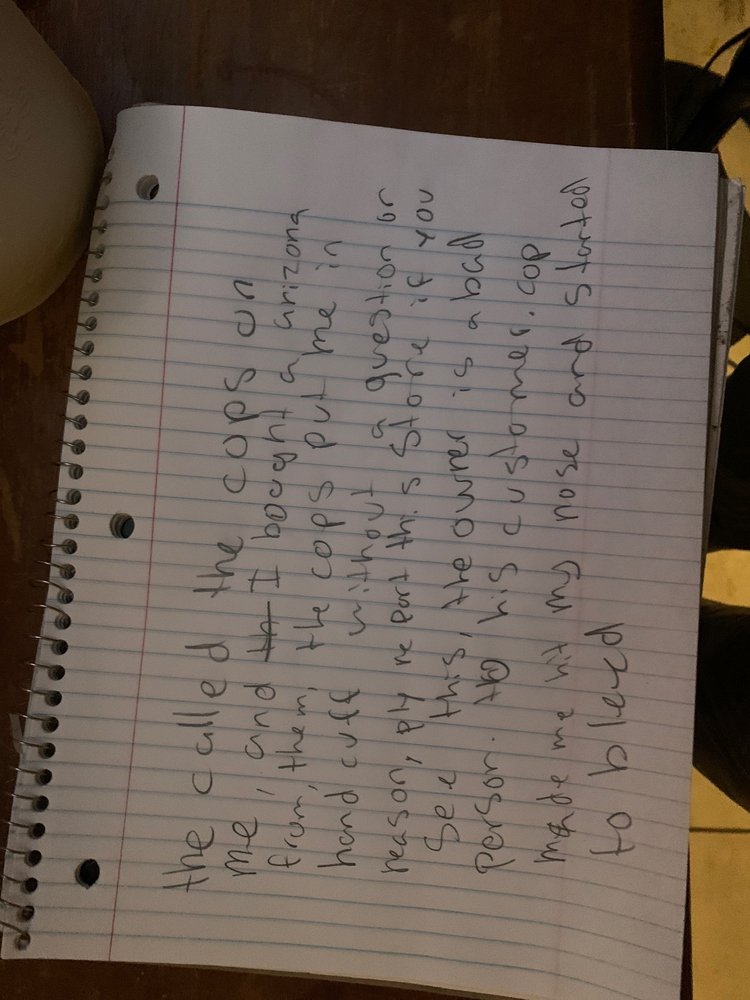 the called the cops on
me, and I bought a arizona
from, them, the cops put me in
hand cuff without a question or
reason, ply report this store if you
see this, the owner is a bad
person. to his customer. cop
made me hit my nose and started
to bleed